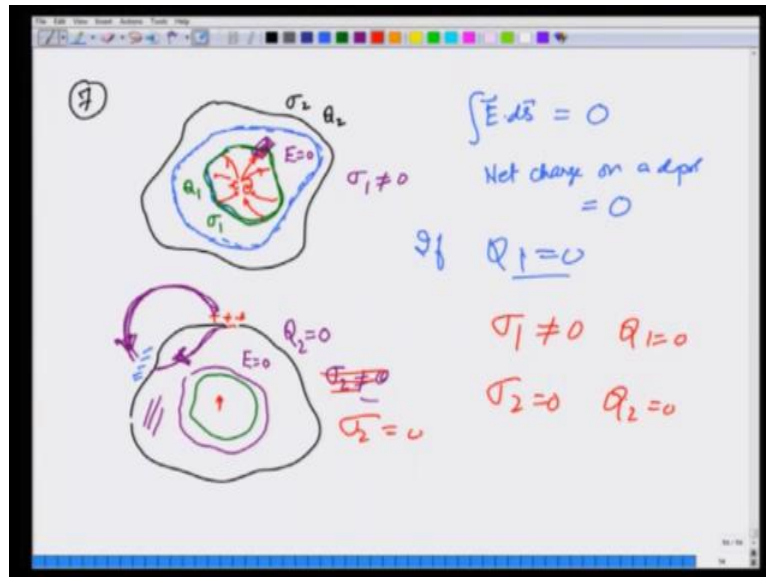 File Edit View Insert Actions Tools Help
7
σ₂ Q₂
E=0
Q₁
σ₁
σ₁ ≠ 0
∫E⃗.ds⃗ = 0
Net charge on a
= 0
If Q₁=0
Q₂=0
E=0
σ₂ ≠ 0
σ₂ = 0
σ₁ ≠ 0 Q₁=0
σ₂=0 Q₂=0